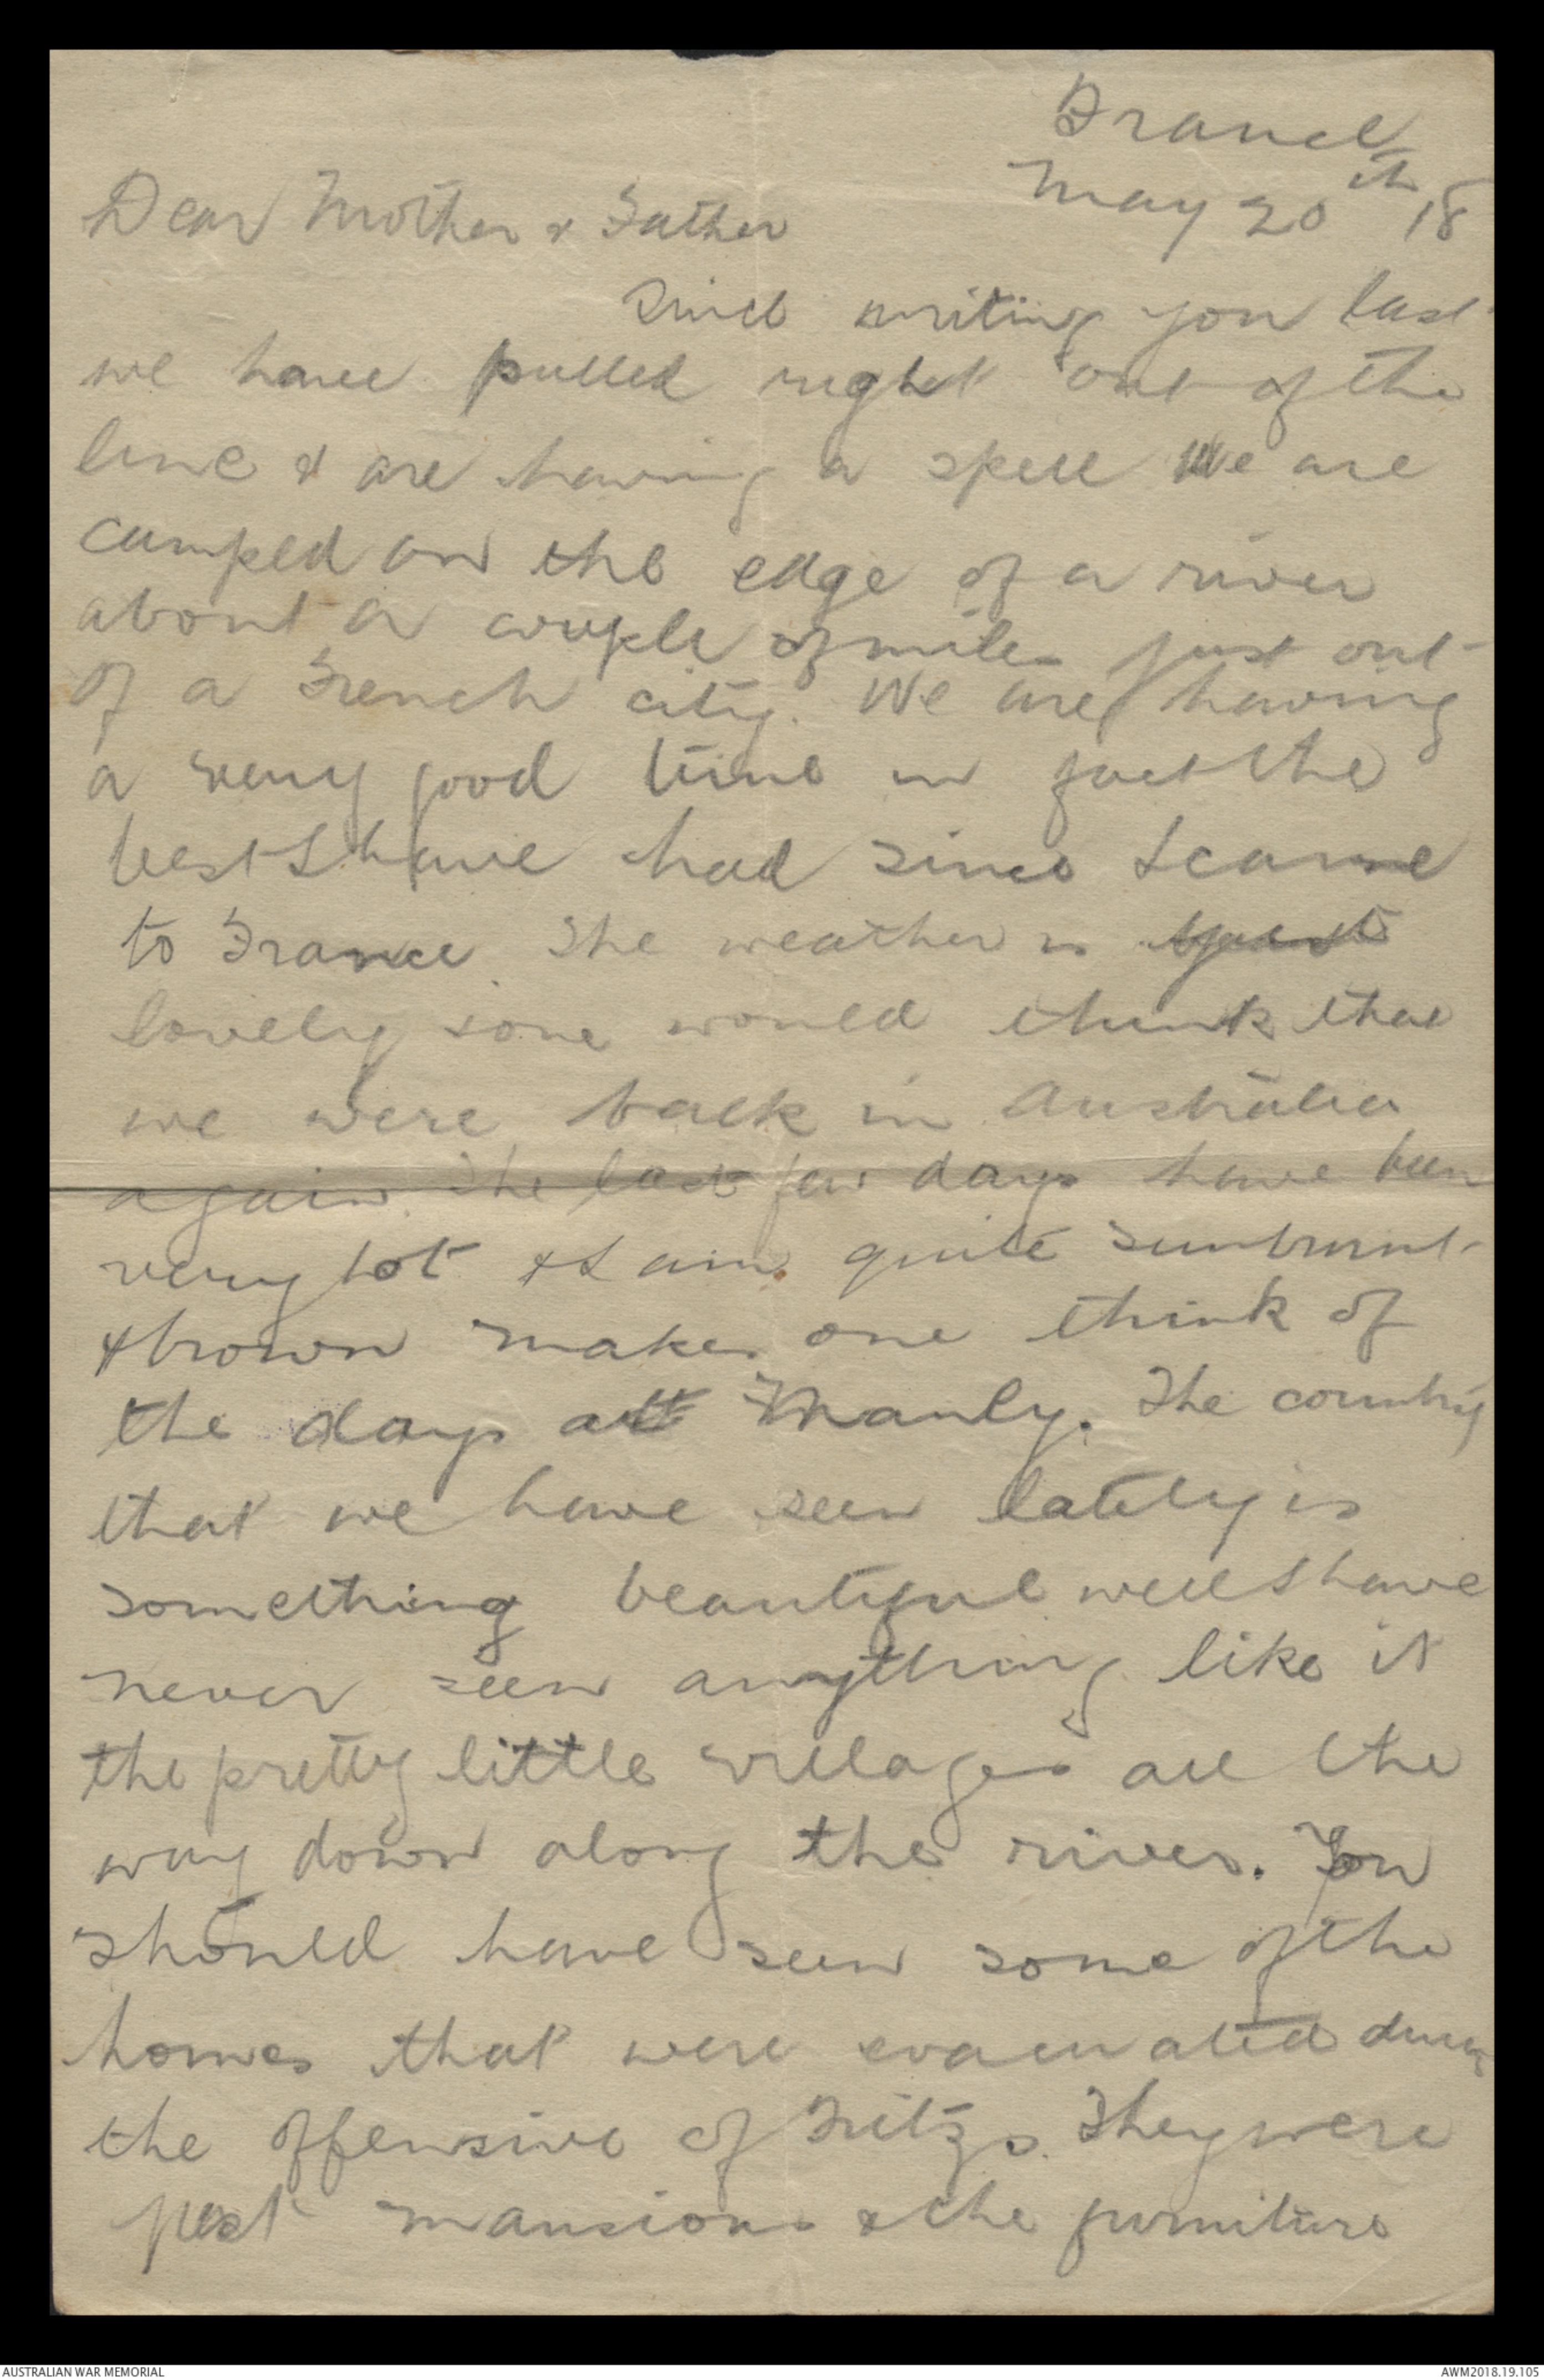 France
May 20th 18
Dear Mother & Father
Since writing you last
we have pulled right out of the
line & are having a spell We are
camped on the edge of a river
about a couple of miles just out
of a French city. We are having
a very good time in fact the
best I have had since I came
to France. The weather is
lovely & one would think that
we were back in Australia
again. The last few days have been
very hot & I am quite sunburnt
& brown makes one think of
the days at Manly. The country
that we have seen lately is
something beautiful well I have
never seen anything like it
the pretty little villages all the
way down along the river. You
should have seen some of the
homes that were evacuated during
the offensive of Fritzs. They were
just mansions & the furniture
AUSTRALIAN WAR MEMORIAL
AWM2018.19.105